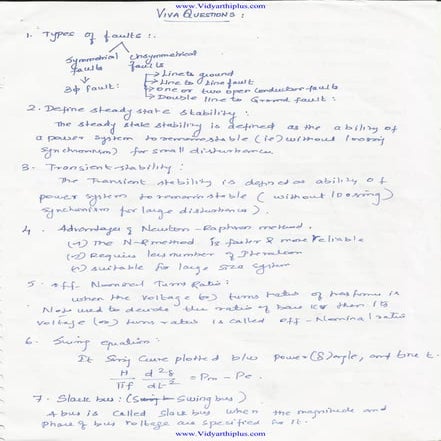 www.Vidyarthiplus.com
VIVA QUESTIONS :
1. Types of faults :
Symmetrical Unsymmetrical
faults faults
3φ fault: Line to ground
Line to Line fault
one or two open conductor faults
Double line to Ground fault :
2. Define steady state stability :
The steady state stability is defined as the ability of
a power system to remain stable (ie) without loosing
synchronism) for small disturbances
3. Transient stability :
The Transient stability is defined as ability of
power system to remain stable ( without loosing)
synchronism for large disturbance).
4. Advantages of Newton - Raphson method.
(1) The N-R method is faster & more reliable
(2) Require less number of Iteration
(3) suitable for large size system
5. off Nominal Turns Ratio:
when the voltage (or) turns ratio of
used to decide the ratio of then its
voltage (or) turns ratio is called off - Nominal ratio
6. Swing equation:
It Swing Curve plotted b/w power (δ) angle, and time t.
H/πf d²δ/dt² = Pm - Pe.
7. Slack bus : ( Swing bus )
A bus is called Slack bus when the magnitude and
phase of bus voltage are specified for it.
www.Vidyarthiplus.com